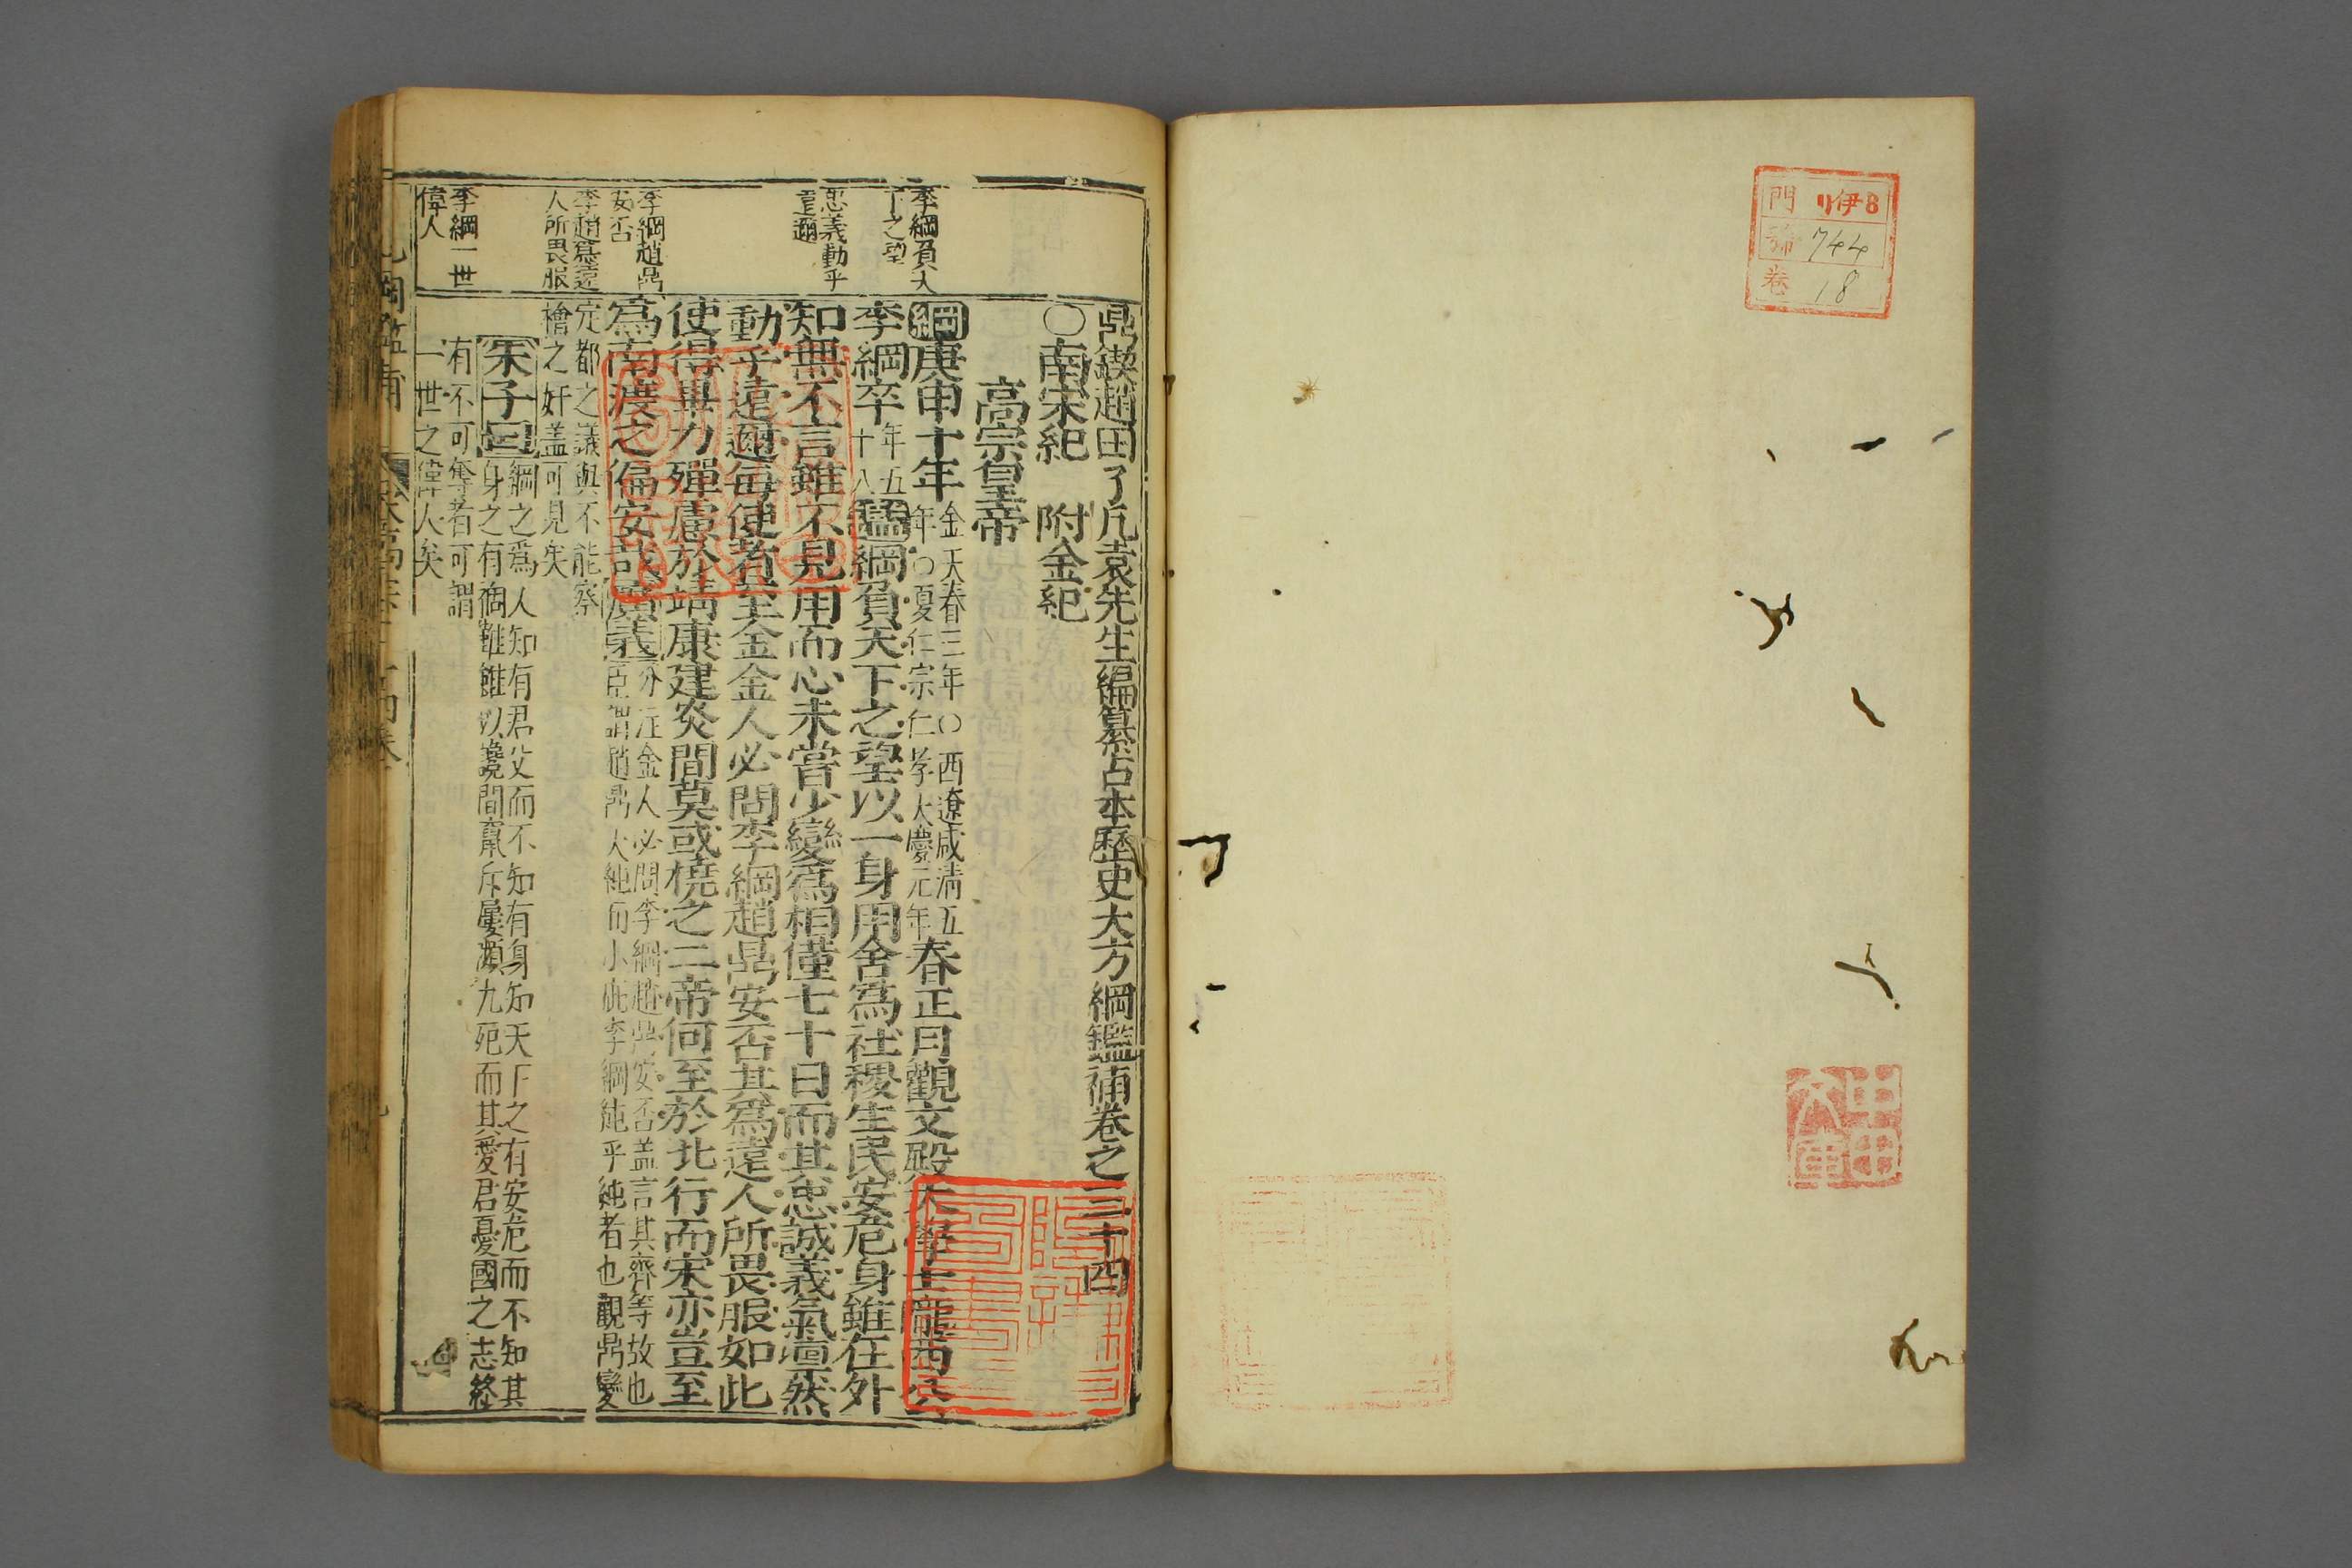 門 リ伊8
號 744
卷 18
鼎鍥趙田了凡袁先生編纂古本歷史大方綱鑑補卷之三十四
○南宋紀 附金紀
高宗皇帝
綱庚申十年金天春三年○西遼咸清五年○夏仁宗仁孝大慶元年春正月觀文殿大學士隴西公
李綱卒年五十八鑑綱負天下之望以一身用舍爲社稷生民安危身雖在外
知無不言雖不見用而心未嘗少變爲相僅七十日而其忠誠義氣凛然
動乎遠邇每使者至金金人必問李綱趙鼎安否其爲遠人所畏服如此
使得畢力殫慮於靖康建炎間莫或撓之二帝何至於北行而宋亦豈至
爲南渡之偏安哉廣義分注金人必問李綱趙鼎安否盖言其齊等故也
臣謂趙鼎大純而小疵李綱純乎純者也觀鼎變
定都之議與不能察
檜之奸盖可見矣
朱子曰綱之爲人知有君父而不知有身知天下之有安危而不知其
身之有禍雖雖以讒間竄斥屢瀕九死而其愛君憂國之志終
有不可奪者可謂
一世之偉人矣
李綱負天
下之望
忠義動乎
遠邇
李綱趙鼎
安否
李趙爲遠
人所畏服
李綱一世
偉人